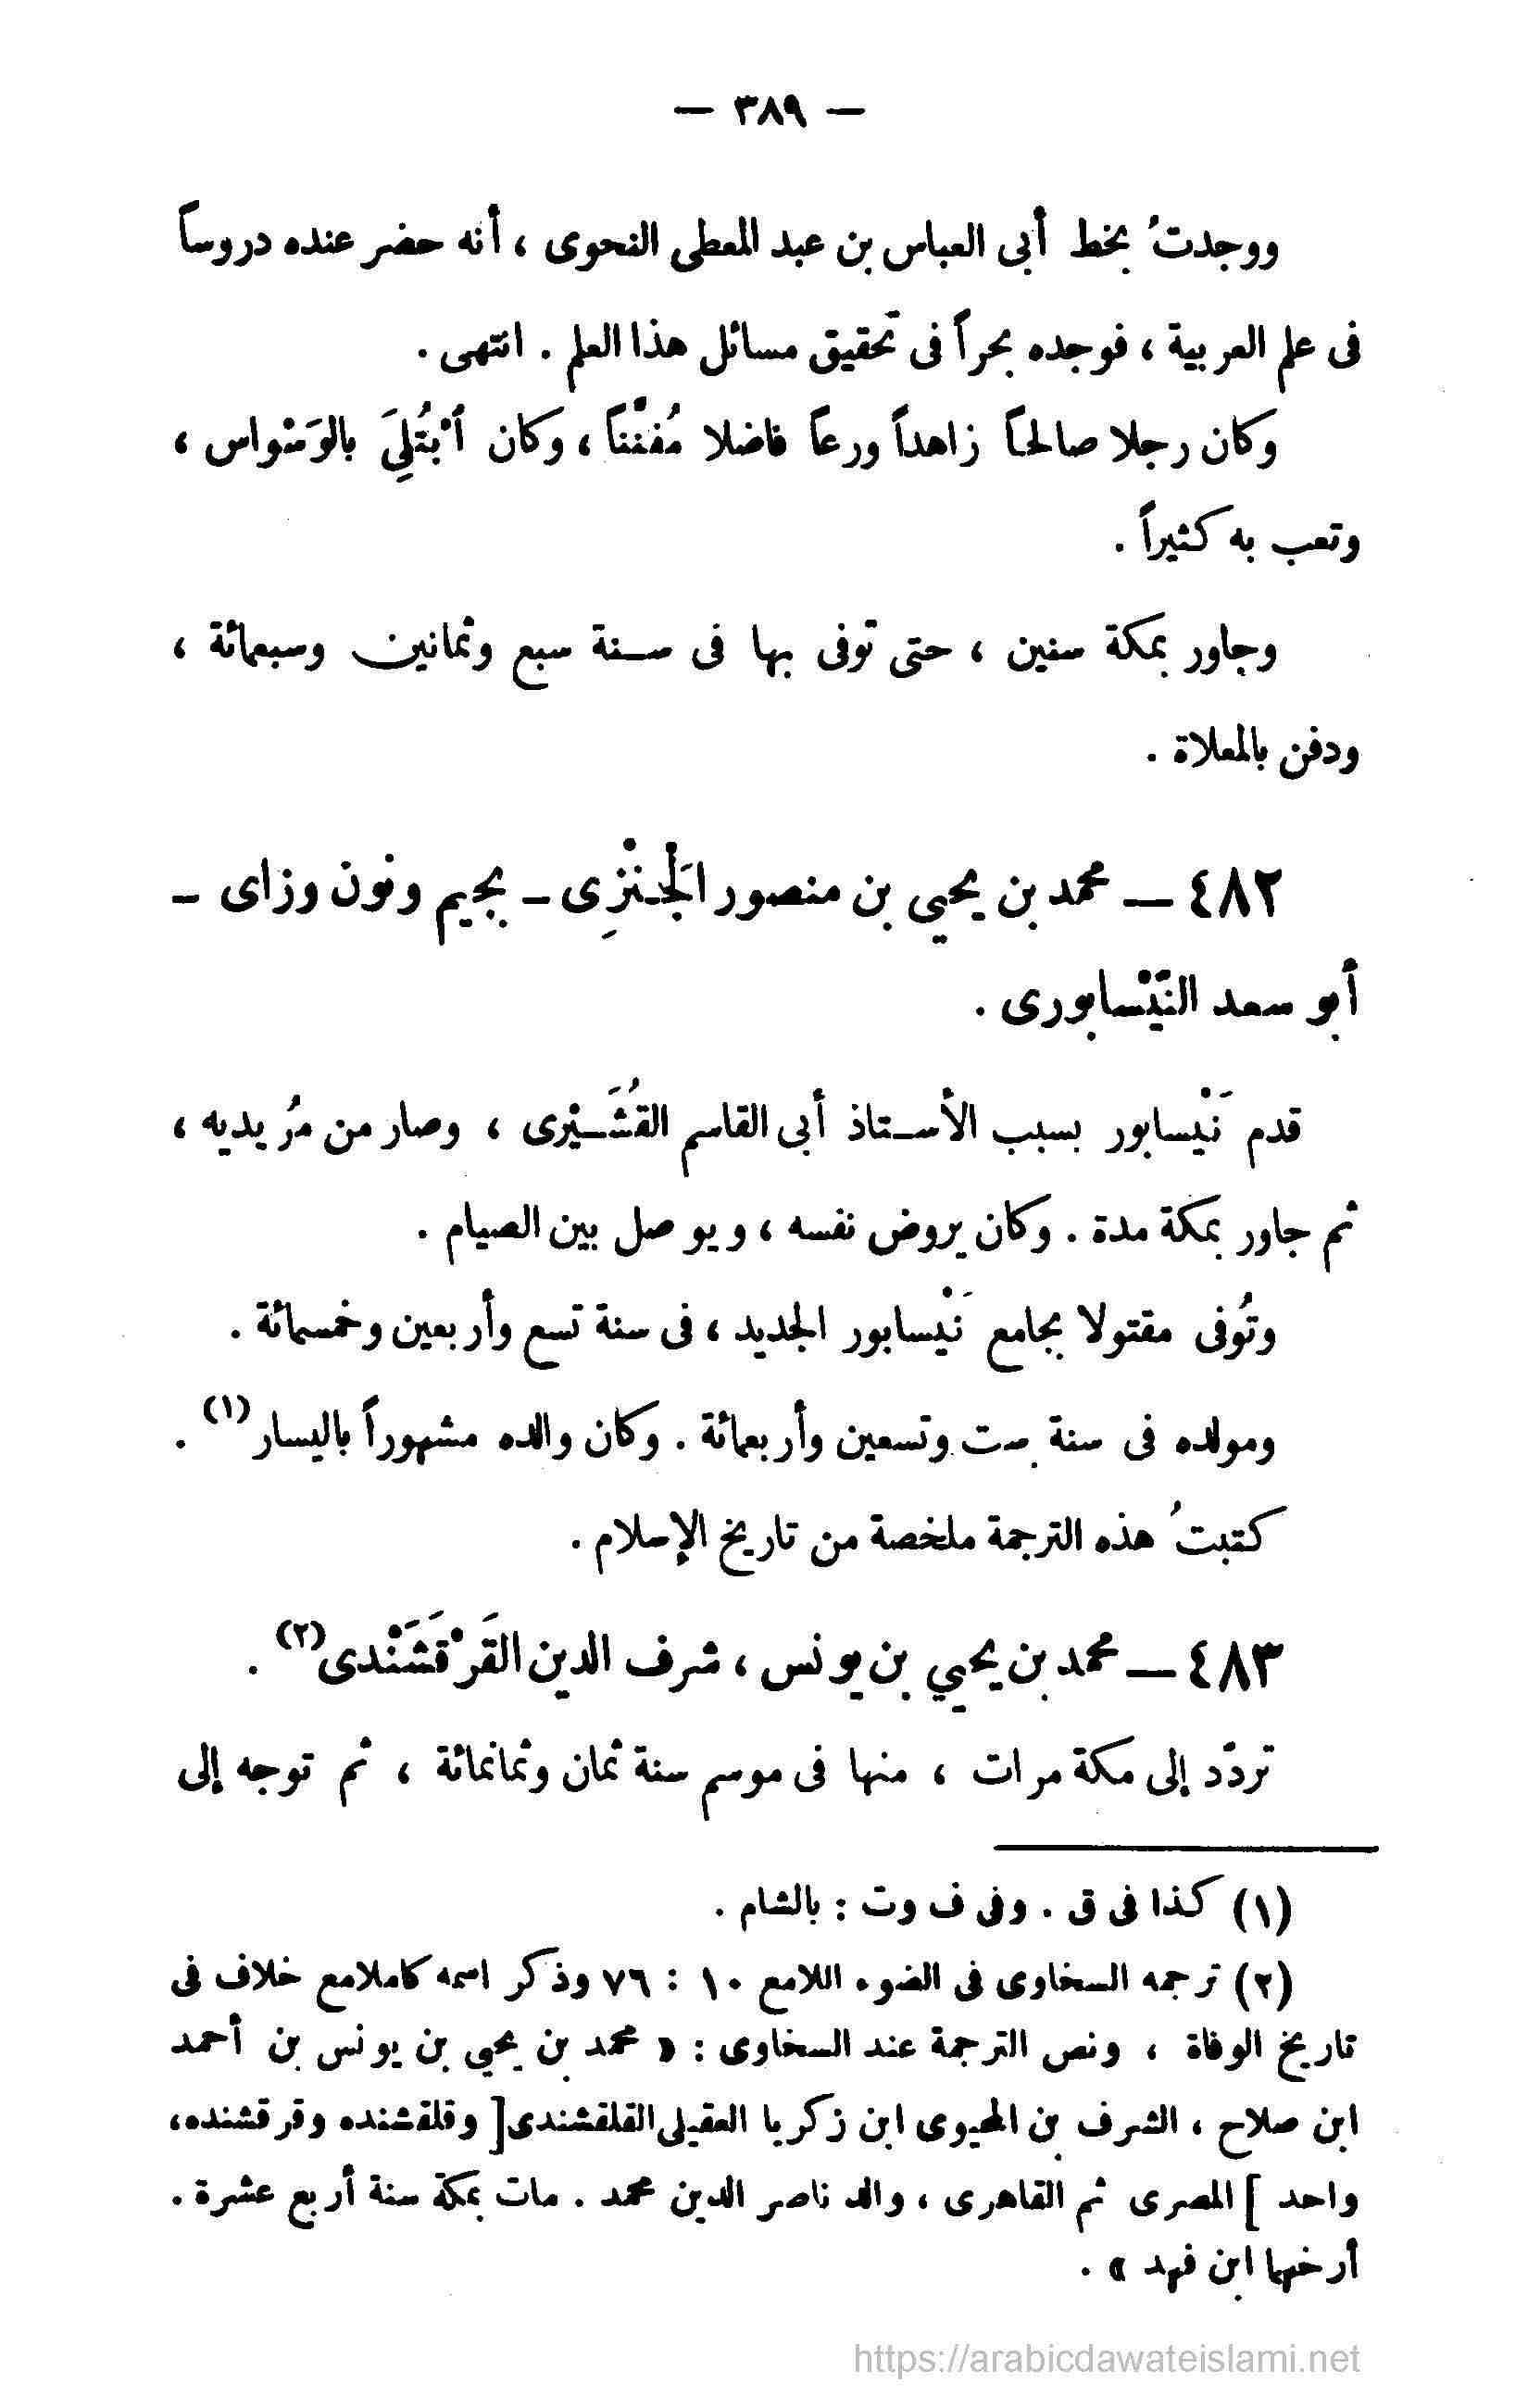 — ٣٨٩ —
ووجدتُ بخط أبى العباس بن عبد المعطى النحوى ، أنه حضر عنده دروساً
فى علم العربية ، فوجده بحراً فى تحقيق مسائل هذا العلم . انتهى .
وكان رجلا صالحاً زاهداً ورعاً فاضلا مُفنّناً ، وكان أبْتُلِىَ بالوَسْواس ،
وتعب به كثيراً .
وجاور بمكة سنين ، حتى توفى بها فى سنة سبع وثمانين وسبعمائة ،
ودفن بالمعلاة .
٤٨٢ — محمد بن يحيي بن منصور الجَنْزِى - بجيم ونون وزاى -
أبو سعد النَّيْسابورى .
قدم نَيْسابور بسبب الأستاذ أبى القاسم القُشَيْرى ، وصار من مُريديه ،
ثم جاور بمكة مدة . وكان يروض نفسه ، ويوصل بين الصيام .
وتُوفى مقتولا بجامع نَيْسابور الجديد ، فى سنة تسع وأربعين وخمسمائة .
ومولده فى سنة ست وتسعين وأربعمائة . وكان والده مشهوراً باليسار (١) .
كتبتُ هذه الترجمة ملخصة من تاريخ الإسلام .
٤٨٣ — محمد بن يحيي بن يونس ، شرف الدين القَرْقَشَنْدى (٢) .
تردّد إلى مكة مرات ، منها فى موسم سنة ثمان وثمانمائة ، ثم توجه إلى
(١) كذا فى ق . وفى ف وت : بالشام .
(٢) ترجمه السخاوى فى الضوء اللامع ١٠ : ٧٦ وذكر اسمه كاملا مع خلاف فى
تاريخ الوفاة ، ونص الترجمة عند السخاوى : « محمد بن يحيي بن يونس بن أحمد
ابن صلاح ، الشرف بن المحيوى ابن زكريا العقيلى القلقشندى [ وقلقشنده وقرقشنده،
واحد ] المصرى ثم القاهرى ، والد ناصر الدين محمد . مات بمكة سنة أربع عشرة .
أرخها ابن فهد » .
https://arabicdawateislami.net